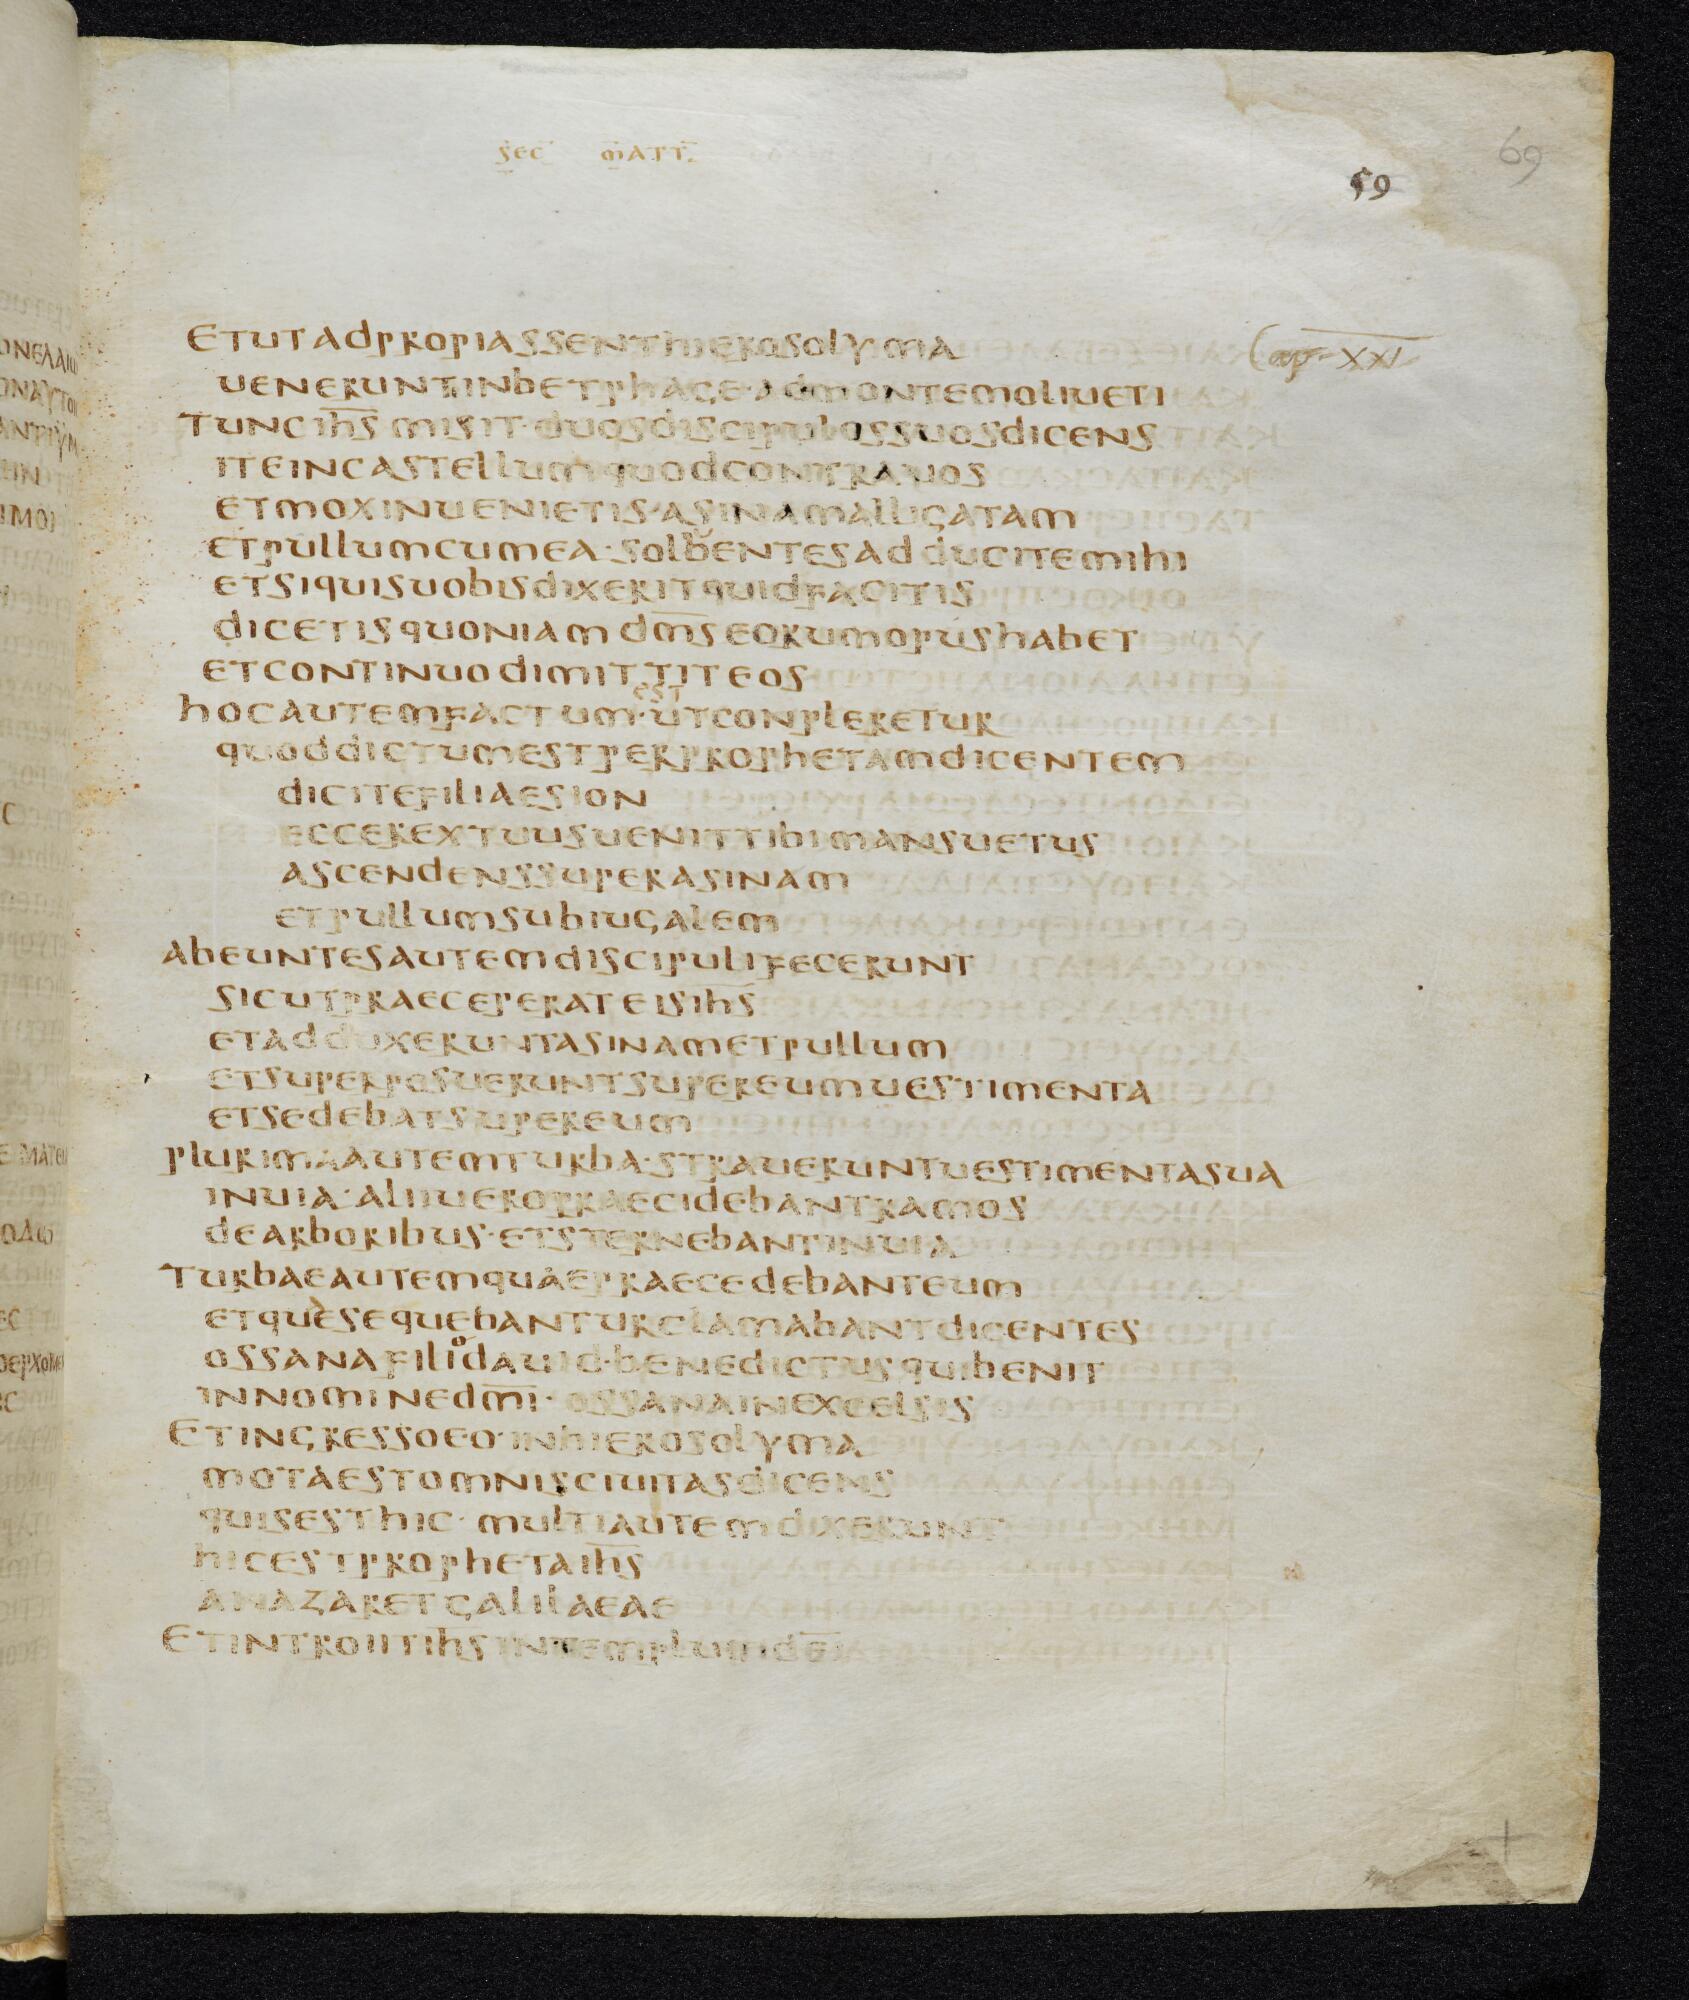 SEC MATT
59
69
Cap XXI
ETUTADPROPIASSENTHIEROSOLYMA
UENERUNTINBETPHAGE·ADMONTEMOLIUETI
TUNC IH̅S̅ MISIT·DUOSDISCIPULOSSUOSDICENS
ITEINCASTELLUMQUODCONTRAUOS
ETMOXINUENIETIS·ASINAMALLIGATAM
ETPULLUMCUMEA·SOLBENTESADDUCITEMIHI
ETSIQUISUOBISDIXERITQUIDFACITIS
DICETISQUONIAMDM̅SEORUMOPUSHABET
ETCONTINUODIMITTITEOS
EST
HOCAUTEMFACTUM·UTCONPLERETUR
QUODDICTUMESTPERPROPHETAMDICENTEM
DICITEFILIAESION
ECCEREXTUUSUENITTIBIMANSUETUS
ASCENDENSSUPERASINAM
ETPULLUMSUBIUGALEM
ABEUNTESAUTEMDISCIPULIFECERUNT
SICUTPRAECEPERATEISIH̅S̅
ETADDUXERUNTASINAMETPULLUM
ETSUPERPOSUERUNTSUPEREUMUESTIMENTA
ETSEDEBATSUPEREUM
PLURIMAAUTEMTURBA·STRAUERUNTUESTIMENTASUA
INUIA·ALIIUEROPRAECIDEBANTRAMOS
DEARBORIBUS·ETSTERNEBANTINUIA
TURBAEAUTEMQUAEPRAECEDEBANTEUM
ETQUESEQUEBANTURCLAMABANTDICENTES
OSSANAFILIODAUID·BENEDICTUSQUIBENIT
INNOMINEDM̅I̅·OSSANAINEXCELSIS
ETINGRESSOEO·INHIEROSOLYMA
MOTAESTOMNISCIUITASDICENS
QUISESTHIC·MULTIAUTEMDIXERUNT
HICESTPROPHETAIH̅S̅
ANAZARETGALILAEAE
ETINTROIITIH̅S̅INTEMPLUMDE̅I̅